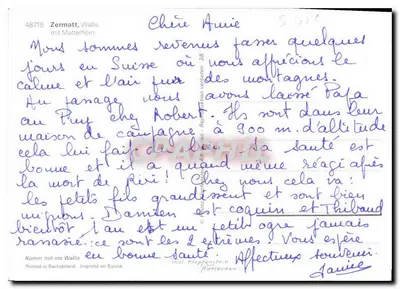 48719 Zermatt, Wallis
mit Matterhorn
Chère Amie
Nous sommes revenus passer quelques
jours en Suisse où nous apprécions le
calme et l'air pur des montagnes.
Au passage, nous avons laissé Papa
au Puy chez Robert. Ils sont dans leur
maison de campagne à 900 m. d'altitude
cela lui fait du bien. Sa santé est
bonne et il a quand même réagi après
la mort de Riri ! Chez nous cela va :
les petits fils grandissent et sont bien
mignons. Damien est coquin et Thibaud
bientôt 1 an est un petit ogre jamais
rassasié : ce sont les 2 extrêmes ! Vous espère
en bonne santé. Affectueux souvenir
Komm mit ins Wallis
Printed in Switzerland Imprimé en Suisse